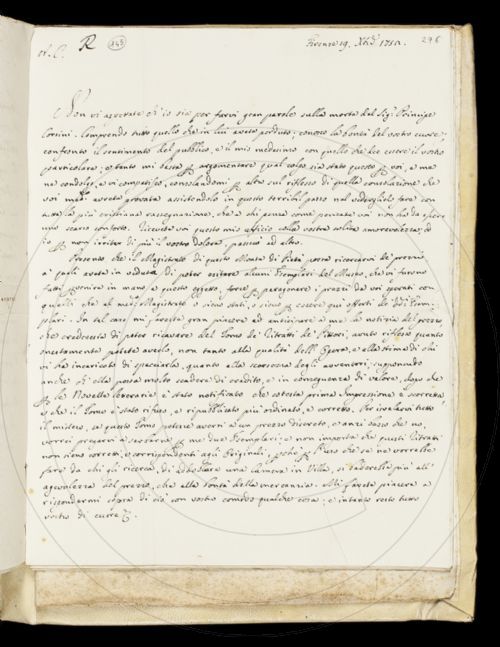 A. C. R 145 Firenze 19. Xbre 1752. 246
Non vi aspettate ch'io sia per farvi gran parole sulla morte del Sigr. Principe
Corsini. Comprendo tutto quello che in lui avete perduto: conosco la bontà del vostro cuore;
confronto il sentimento del pubblico, e il mio medesimo con quello che dee essere il vostro
particolare; e tanto mi basta per argomentare qual colpo sia stato questo per voi, e me
ne condolgo, e vi compatisco, consolandomi per altro sul riflesso di quella consolazione che
voi avrete provata assistendolo in questo terribil passo nel vederglielo fare con
tutta la più cristiana rassegnazione, che a chi pensa come pensate voi non ha da essere
uno scarso conforto. Ricevete voi questo mio uffizio colla vostra solita amorevolezza, ed
io per non irritar di più il vostro dolore, passerò ad altro.
Presento che il Magistrato di questo Monte di Pietà possa ricercarvi de' prezzi
a' quali avete in veduta di poter esitare alcuni Esemplari del Museo, che vi furono
fatti venire in mano per questo oggetto, forse per paragonare i prezzi da voi
quelli che al medo. Magistrato o sieno stati, o sieno per essere qui offerti de' ddi. Esem-
plari. In tal caso mi fareste gran piacere ad anticipare a me la notizia del prezzo
che credeste di poter ricavare del Tomo de' Ritratti de' Pittori, avuto riflesso quanto
onestamente potete averlo, non tanto alla qualità dell'Opera, e alla stima di chi
vi ha incaricato di spacciarla, quanto alla scarsezza degli avventori; supponendo
anche che ella possa molto scadere di credito, e in conseguenza di valore, dopo che
per le Novelle letterarie è stato notificato che cotesta prima Impressione è scorretta,
e che il Tomo è stato rifuso, e ripubblicato più ordinato, e corretto. Per isvelarvi tutto
il mistero, se questo Tomo potesse aversi a un prezzo discreto, e anzi basso che no,
vorrei pregarvi a serbarne per me due Esemplari; e non importa che questi Ritratti
non sieno corretti, e corrispondenti agli Originali, perchè per l'uso che se ne vorrebbe
fare da chi gli ricerca, di addobbare una Camera in Villa, si baderebbe più all'
agevolezza del prezzo, che alla bontà della mercanzia. Mi farete piacere a
rispondermi sopra di ciò con vostro comodo qualche cosa; e intanto resto tutto
vostro di cuore